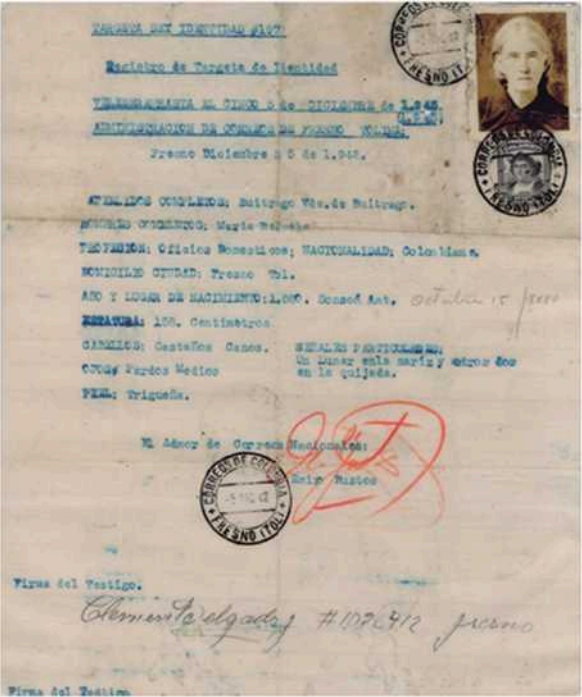 TARGETA DEY IDENTIDAD #197
Registro de Targeta de Identidad
EL CINCO 5 de DICIEMBRE de 1.942.
ADMINISTRACION DE CORREOS DE FRESNO TOLIMA.
Fresno Diciembre 5 de 1.942.
APELLIDOS COMPLETOS: Buitrago Vda. de Buitrago.
NOMBRES COMPLETOS: Maria
PROFESION: Oficios Domesticos; NACIONALIDAD; Colombiana.
DOMICILIO CIUDAD; Fresno Tol.
AÑO Y LUGAR DE NACIMIENTO: Sonsón Ant. Octubre 15
ESTATURA: 158. Centimetros
CABELLOS: Castaños Canos. SEÑALES PARTICULARES:
Un Lunar enla nariz y dos
OJOS; Pardos Medios en la quijada.
PIEL: Trigueña.
El Admor de Correos Nacionales:
Bustos
CORREOS DE COLOMBIA
FRESNO (TOL)
CORREOS DE COLOMBIA
FRESNO (TOL)
CORREOS DE COLOMBIA
FRESNO (TOL)
Firma del Testigo.
Clemente Delgado #1076412 fresno
Firma del Testigo